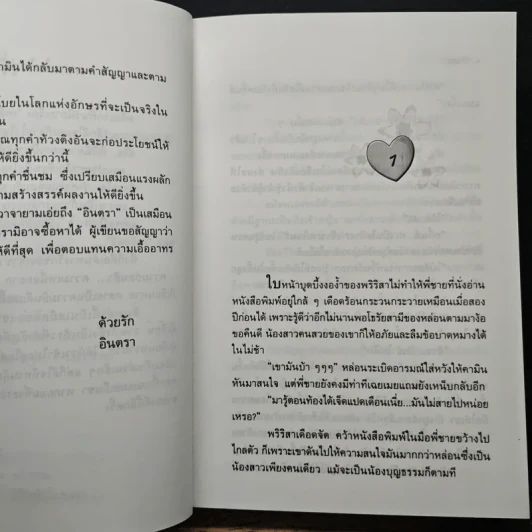 ามินได้กลับมาตามคำสัญญาและตาม
โบยในโลกแห่งอักษรที่จะเป็นจริงใน
น
ณทุกคำท้วงติงอันจะก่อประโยชน์ให้
ห้ดียิ่งขึ้นกว่านี้
ทุกคำชื่นชม ซึ่งเปรียบเสมือนแรงผลัก
ามสร้างสรรค์ผลงานให้ดียิ่งขึ้น
วาจายามเอ่ยถึง “อินตรา” เป็นเสมือน
รามิอาจซื้อหาได้ ผู้เขียนขอสัญญาว่า
ห้ดีที่สุด เพื่อตอบแทนความเอื้ออาทร
ด้วยรัก
อินตรา
1
ใบหน้าบูดบึ้งงอง้ำของพริริสาไม่ทำให้พี่ชายที่นั่งอ่าน
หนังสือพิมพ์อยู่ใกล้ ๆ เดือดร้อนกระวนกระวายเหมือนเมื่อสอง
ปีก่อนได้ เพราะรู้ดีว่าอีกไม่นานพอโธรัยสามีของหล่อนตามมาง้อ
ขอคืนดี น้องสาวคนสวยของเขาก็ให้อภัยและลืมข้อบาดหมางได้
ในไม่ช้า
“เขามันบ้า ๆๆๆ” หล่อนระเบิดอารมณ์ใส่หวังให้คามิน
หันมาสนใจ แต่พี่ชายยังคงมีท่าทีเฉยเมยแถมยังเหน็บกลับอีก
“มารู้ตอนท้องได้เจ็ดแปดเดือนเนี่ย...มันไม่สายไปหน่อย
เหรอ?”
พริริสาเดือดจัด คว้าหนังสือพิมพ์ในมือพี่ชายขว้างไป
ไกลตัว ก็เพราะเขาดันไปให้ความสนใจมันมากกว่าหล่อนซึ่งเป็น
น้องสาวเพียงคนเดียว แม้จะเป็นน้องบุญธรรมก็ตามที